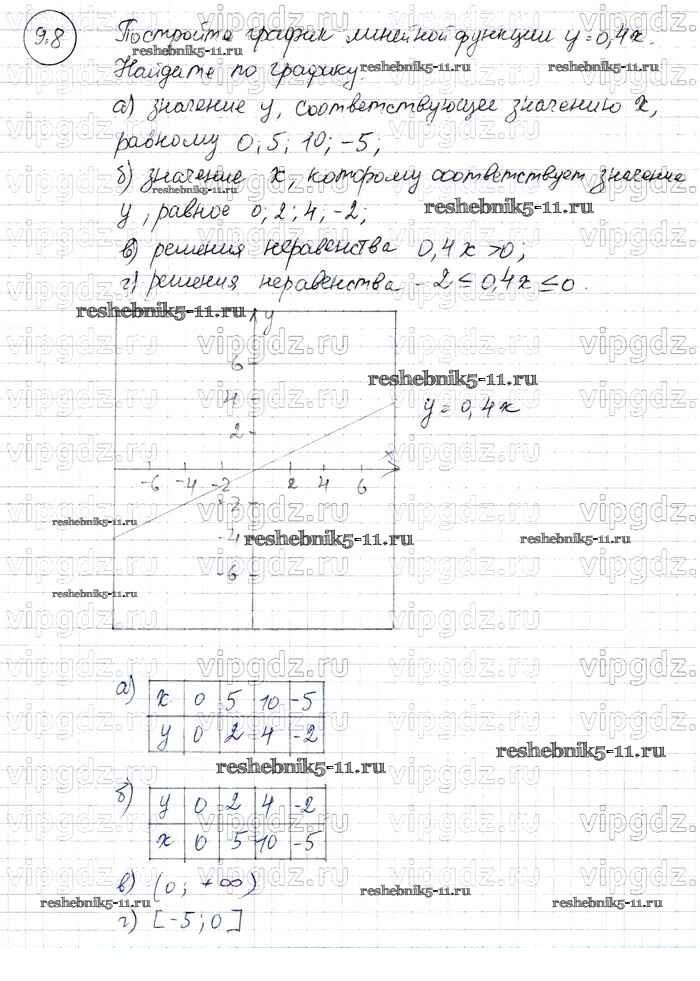 9.8 Постройте график линейной функции y=0,4x.
Найдите по графику:
а) значение y, соответствующее значению x,
равному 0; 5; 10; -5;
б) значение x, которому соответствует значение
y, равное 0; 2; 4; -2;
в) решения неравенства 0,4x>0;
г) решения неравенства -2≤0,4x≤0.
y
6
4
y=0,4x
2
x
-6 -4 -2 2 4 6
-2
-4
-6
а) x 0 5 10 -5
y 0 2 4 -2
б) y 0 2 4 -2
x 0 5 10 -5
в) (0; +∞)
г) [-5; 0]
reshebnik5-11.ru
vipgdz.ru